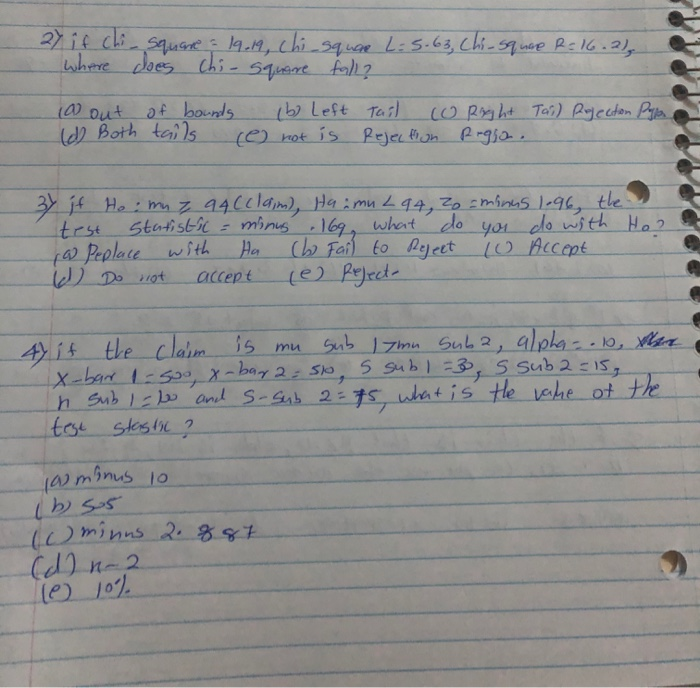 2) if Chi-Square = 19.19, Chi-square L = 5.63, Chi-square R = 16.21,
where does Chi-Square fall?
(a) out of bounds (b) Left Tail (c) Right Tail Rejection Region
(d) Both tails (e) not is Rejection Region.
3) if Ho: mu ≥ 94 (claim), Ha: mu < 94, Zo = minus 1.96, the
test statistic = minus .169, what do you do with Ho?
(a) Replace with Ha (b) Fail to Reject (c) Accept
(d) Do not accept (e) Reject.
4) if the Claim is mu sub 1 > mu sub 2, alpha = .10,
x-bar 1 = 500, x-bar 2 = 510, S sub 1 = 30, S sub 2 = 15,
n sub 1 = 100 and S-sub 2 = 75, what is the value of the
test stastic?
(a) minus 10
(b) 505
(c) minus 2.887
(d) n-2
(e) 10%